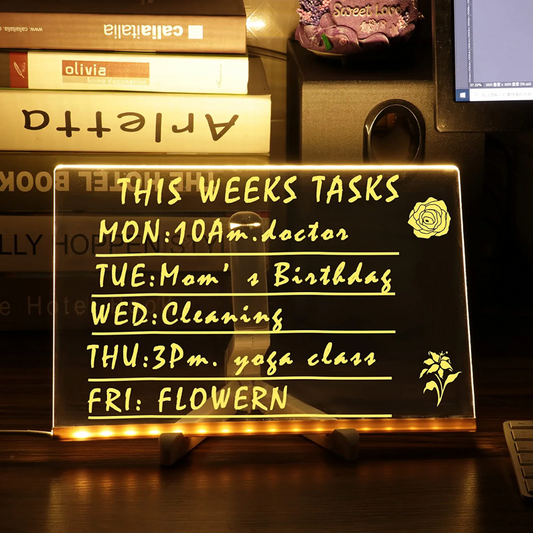 www.
calliaitalia
olivia
Arletta
THE HOTEL BOOK
Sweet Love
THIS WEEKS TASKS
MON:10Am.doctor
TUE:Mom's Birthdag
WED:Cleaning
THU:3Pm. yoga class
FRI: FLOWERN